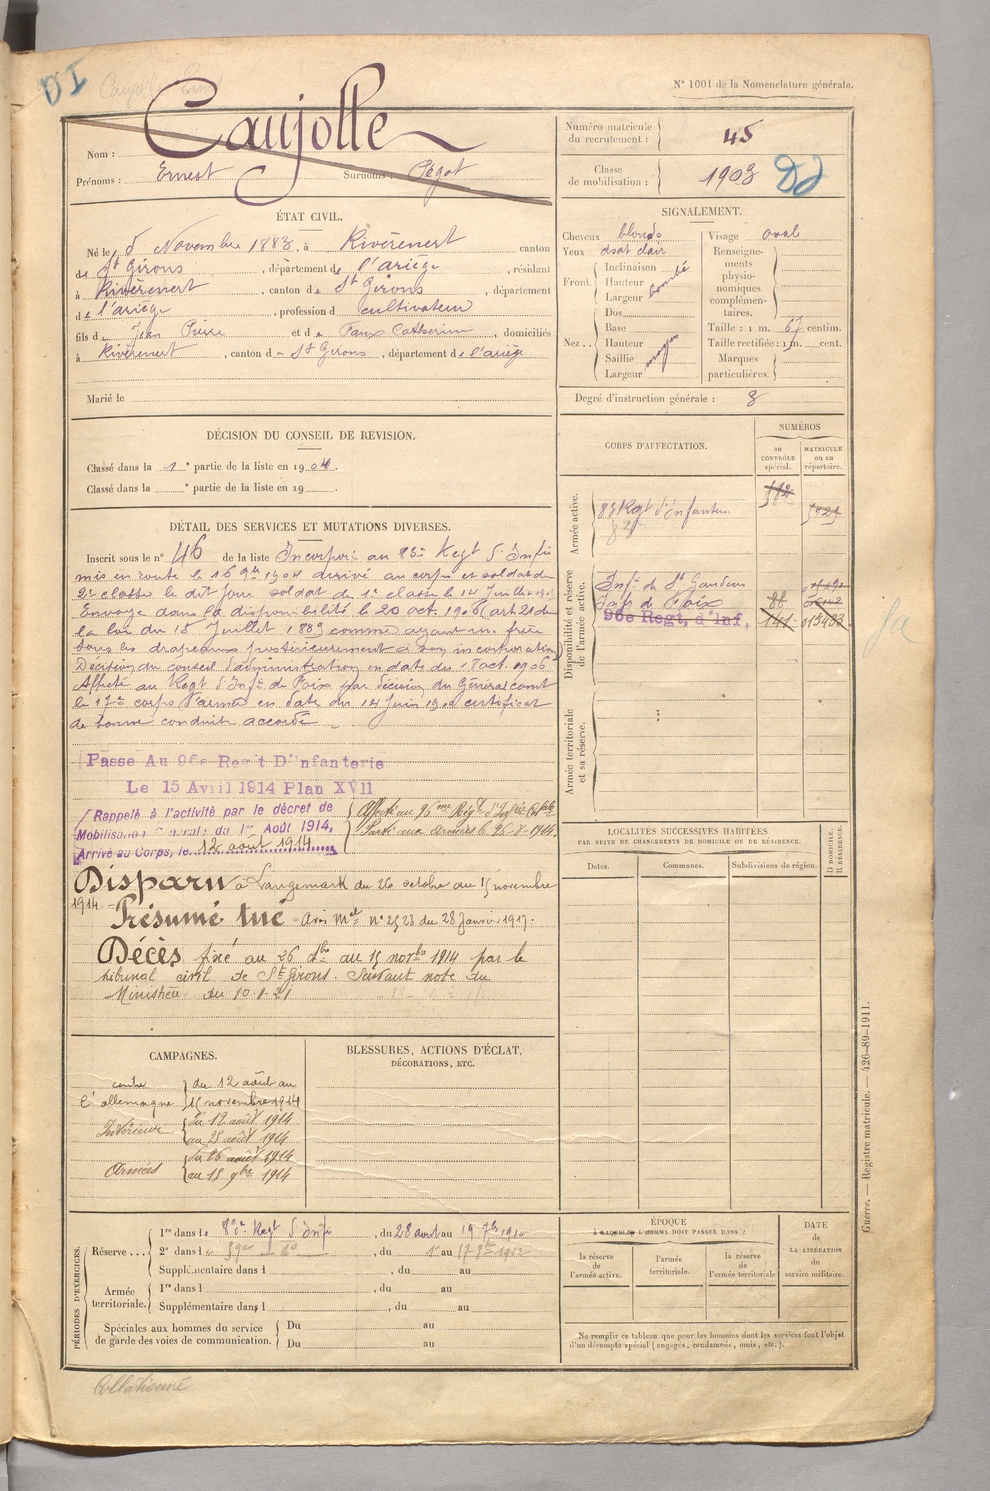 DI
N° 1001 de la Nomenclature générale.
Nom : Caujolle
Prénoms : Ernest Surnoms : Pégot
Numéro matricule du recrutement : 45
Classe de mobilisation : 1903
ÉTAT CIVIL.
Né le 5 Novembre 1883, à Rivèrenert canton
de St Girons, département de l'ariège, résidant
à Rivèrenert, canton de St Girons, département
de l'ariège, profession de cultivateur
fils de Jean Pierre et de Paux Catherine, domiciliés
à Rivèrenert, canton de St Girons, département de l'ariège
Marié le
SIGNALEMENT.
Cheveux blonds Visage ovale
Yeux chat clair
Front. Inclinaison
Hauteur bombé
Largeur
Nez.. Dos
Base
Hauteur moyen
Saillie
Largeur
Renseignements physionomiques complémentaires.
Taille : 1 m. 67 centim.
Taille rectifiée : 1 m. cent.
Marques particulières.
Degré d'instruction générale : 3
DÉCISION DU CONSEIL DE REVISION.
Classé dans la 1e partie de la liste en 1904.
Classé dans la e partie de la liste en 19
DÉTAIL DES SERVICES ET MUTATIONS DIVERSES.
Inscrit sous le n° 46 de la liste Incorporé au 83e Regt d'Infie
mis en route le 16 9bre 1904 arrivé au corps et soldat de
2e classe le dit jour soldat de 1e classe le 14 Juillet 190
Envoyé dans la disponibilité le 20 oct. 1906 (art 21 de
la loi du 15 Juillet 1889 comme ayant un frère
sous les drapeaux postérieurement à son incorporation)
Décision du conseil d'administration en date du oct. 1906.
Affecté au Regt d'Infie de Foix par décision du Général comt
le 17e corps d'armée en date du 14 Juin 19 certificat
de bonne conduite accordé
Passé Au 96e Reg't D'Infanterie
Le 15 Avril 1914 Plan XVII
Rappelé à l'activité par le décret de
Mobilisation Générale du 1er Août 1914,
Arrivé au Corps, le 12 août 1914
Affecté au 96me Régt d'Infie
Parti aux armées le 26-8-1914.
Disparu à Langemark du 26 octobre au 15 novembre
1914. Présumé tué Avis Mel n° 2523 du 28 Janvier 1917.
Décès fixé au 26 8bre au 15 novbre 1914 par le
tribunal civil de St Girons. Suivant note du
Ministère du 10-1-21
CORPS D'AFFECTATION.
NUMÉROS
AU CONTRÔLE SPÉCIAL.
MATRICULE OU AU RÉPERTOIRE.
Armée active.
83 Regt d'Infanterie
Disponibilité et réserve de l'armée active.
Infie de St Gaudens
Infie de Foix
96e Regt, d'Inf, 141 013483
Armée territoriale et sa réserve.
LOCALITÉS SUCCESSIVES HABITÉES
PAR SUITE DE CHANGEMENTS DE DOMICILE OU DE RÉSIDENCE.
Dates. Communes. Subdivisions de région. D DOMICILE. R RÉSIDENCE.
CAMPAGNES.
contre l'allemagne du 12 août au
15 novembre 1914
Intérieur du 12 août 1914
au 25 août 1914
Armées du 26 août 1914
au 15 9bre 1914
BLESSURES, ACTIONS D'ÉCLAT,
DÉCORATIONS, ETC.
PÉRIODES D'EXERCICES.
Réserve ... 1re dans le Regt d'Infie, du 28 avril au 19
2e dans le 59e do, du 1er au 17 1912
Supplémentaire dans l , du au
Armée territoriale. 1re dans l , du au
Supplémentaire dans l , du au
Spéciales aux hommes du service de garde des voies de communication. Du au
Du au
ÉPOQUE
À LAQUELLE L'HOMME DOIT PASSER DANS :
la réserve de l'armée active. l'armée territoriale. la réserve de l'armée territoriale
DATE DE LA LIBÉRATION du service militaire.
Ne remplir ce tableau que pour les hommes dont les services font l'objet
d'un décompte spécial (engagés, condamnés, omis, etc.).
Guerre. — Registre matricule. — 426-89-1911.
Collationné